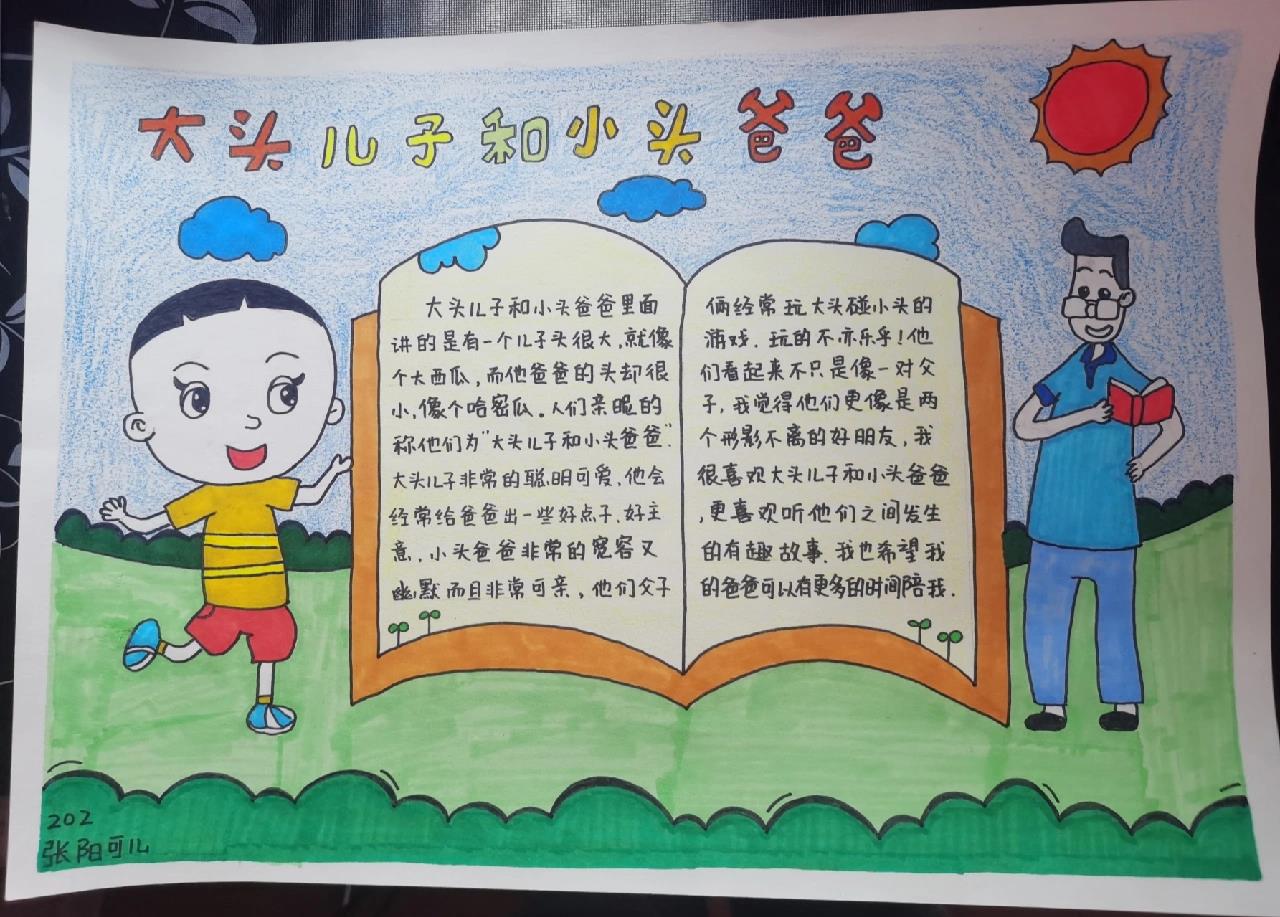 大头儿子和小头爸爸
大头儿子和小头爸爸里面
讲的是有一个儿子头很大,就像
个大西瓜,而他爸爸的头却很
小,像个哈密瓜。人们亲昵的
称他们为"大头儿子和小头爸爸".
大头儿子非常的聪明可爱,他会
经常给爸爸出一些好点子、好主
意,小头爸爸非常的宽容又
幽默而且非常可亲,他们父子
俩经常玩大头碰小头的
游戏,玩的不亦乐乎!他
们看起来不只是像一对父
子,我觉得他们更像是两
个形影不离的好朋友,我
很喜欢大头儿子和小头爸爸
,更喜欢听他们之间发生
的有趣故事,我也希望我
的爸爸可以有更多的时间陪我.
202
张阳可儿